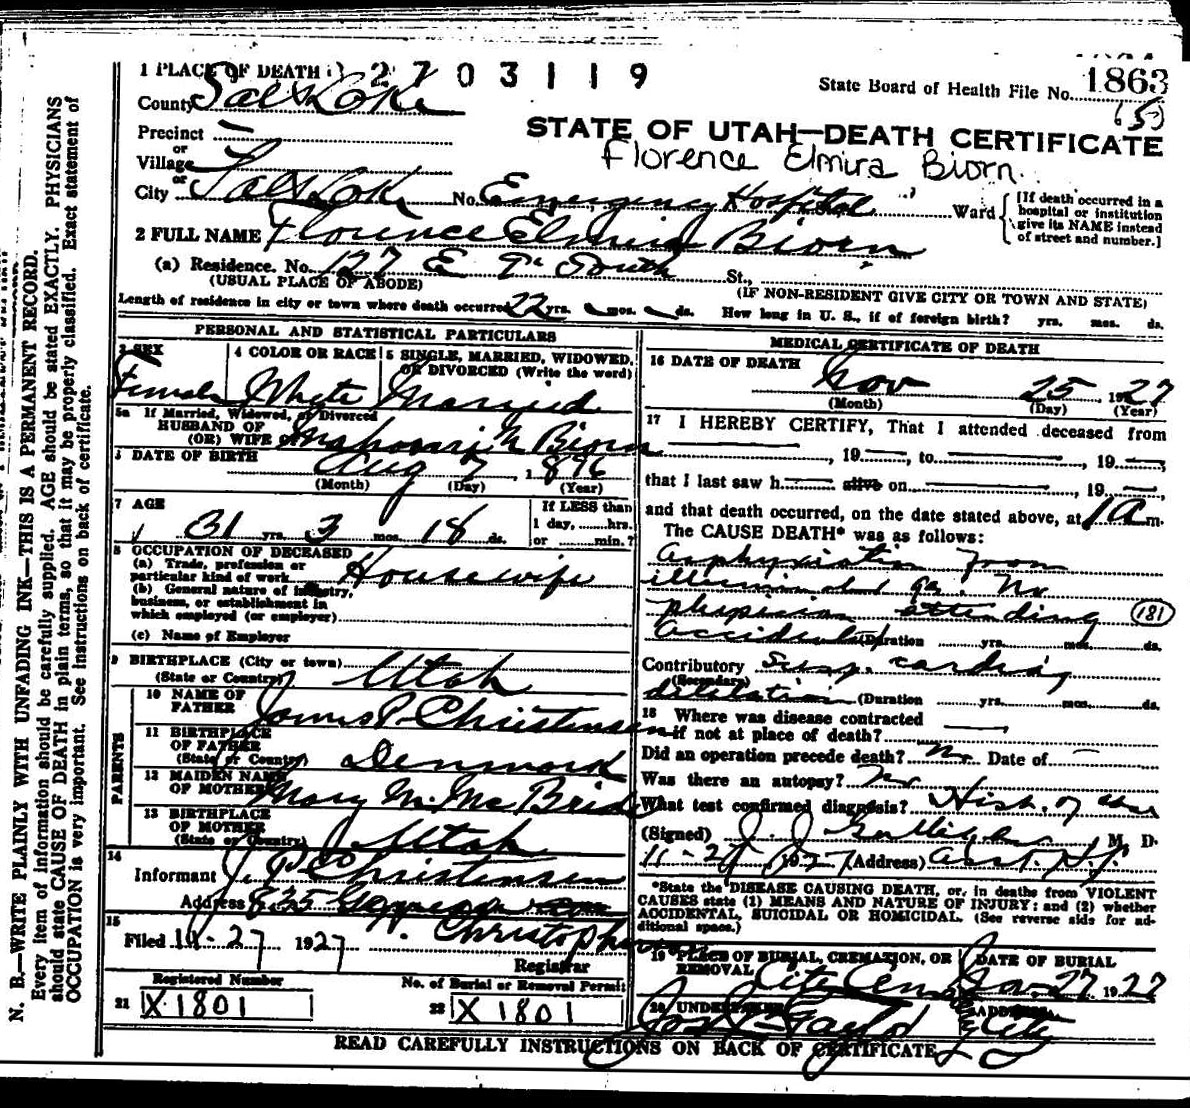 1 PLACE OF DEATH 2703119
State Board of Health File No. 1863
County Salt Lake
(5)
STATE OF UTAH—DEATH CERTIFICATE
Precinct
or
Florence Elmira Biorn.
Village
or
City Salt Lake No. Emergency Hospital St. Ward
[If death occurred in a
hospital or institution
give its NAME instead
of street and number.]
2 FULL NAME Florence Elmira Biorn
(a) Residence. No. 127 E 9th South St.,
(USUAL PLACE OF ABODE)
(IF NON-RESIDENT GIVE CITY OR TOWN AND STATE)
Length of residence in city or town where death occurred 22 yrs. mos. ds. How long in U. S., if of foreign birth? yrs. mos. ds.
PERSONAL AND STATISTICAL PARTICULARS
3 SEX
Female
4 COLOR OR RACE
White
5 SINGLE, MARRIED, WIDOWED,
OR DIVORCED (Write the word)
Married
5a If Married, Widowed, or Divorced
HUSBAND OF
(OR) WIFE Biorn
DATE OF BIRTH Aug 7, 1896
(Month) (Day) (Year)
7 AGE
31 yrs. 3 mos. 18 ds.
If LESS than
1 day, hrs.
or min.?
8 OCCUPATION OF DECEASED
(a) Trade, profession or
particular kind of work Housewife
(b) General nature of industry,
business, or establishment in
which employed (or employer)
(c) Name of Employer
9 BIRTHPLACE (City or town)
(State or Country) Utah
PARENTS
10 NAME OF
FATHER James P. Christensen
11 BIRTHPLACE
OF FATHER
(State or Country) Denmark
12 MAIDEN NAME
OF MOTHER Mary M. McBride
13 BIRTHPLACE
OF MOTHER
(State or Country) Utah
14
Informant J. P. Christensen
Address 835
15
Filed 11-27 1927 Christopherson
Registrar
Registered Number
21 X1801
No. of Burial or Removal Permit
22 X 1801
MEDICAL CERTIFICATE OF DEATH
16 DATE OF DEATH
Nov 25 1927
(Month) (Day) (Year)
17 I HEREBY CERTIFY, That I attended deceased from
, 19 , to , 19 ,
that I last saw h alive on , 19 ,
and that death occurred, on the date stated above, at 1 A m.
The CAUSE DEATH* was as follows:
Asphyxiation from
illuminated gas. No
physician attending
(181)
Accidental (Duration yrs. mos. ds.
Contributory Susp. cardiac
(Secondary)
dilatation (Duration yrs. mos. ds.
18 Where was disease contracted
if not at place of death?
Did an operation precede death? No Date of
Was there an autopsy? No
What test confirmed diagnosis? Hist. of
(Signed) J. J. M. D.
11-27 1927 (Address) Asst.
*State the DISEASE CAUSING DEATH, or, in deaths from VIOLENT
CAUSES state (1) MEANS AND NATURE OF INJURY; and (2) whether
ACCIDENTAL, SUICIDAL OR HOMICIDAL. (See reverse side for ad-
ditional space.)
19 PLACE OF BURIAL, CREMATION, OR
REMOVAL City Cem
DATE OF BURIAL
Nov. 27 1927
20 UNDERTAKER
Taylor
ADDRESS
City
READ CAREFULLY INSTRUCTIONS ON BACK OF CERTIFICATE
N. B.—WRITE PLAINLY WITH UNFADING INK—THIS IS A PERMANENT RECORD.
Every item of information should be carefully supplied. AGE should be stated EXACTLY. PHYSICIANS
should state CAUSE OF DEATH in plain terms, so that it may be properly classified. Exact statement of
OCCUPATION is very important. See instructions on back of certificate.